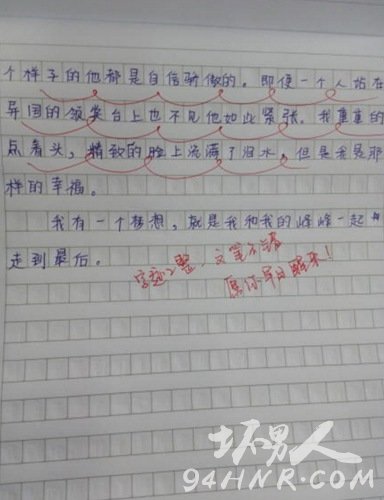 个样子的他都是自信骄傲的。即使一个人站在
异国的领奖台上也不见他如此紧张。我重重的
点着头,精致的脸上流满了泪水,但是我是那
样的幸福。
我有一个梦想,就是我和我的峰峰一起
走到最后。
字迹工整、文笔不错
愿你早日醒来!
坏男人
94HNR.COM